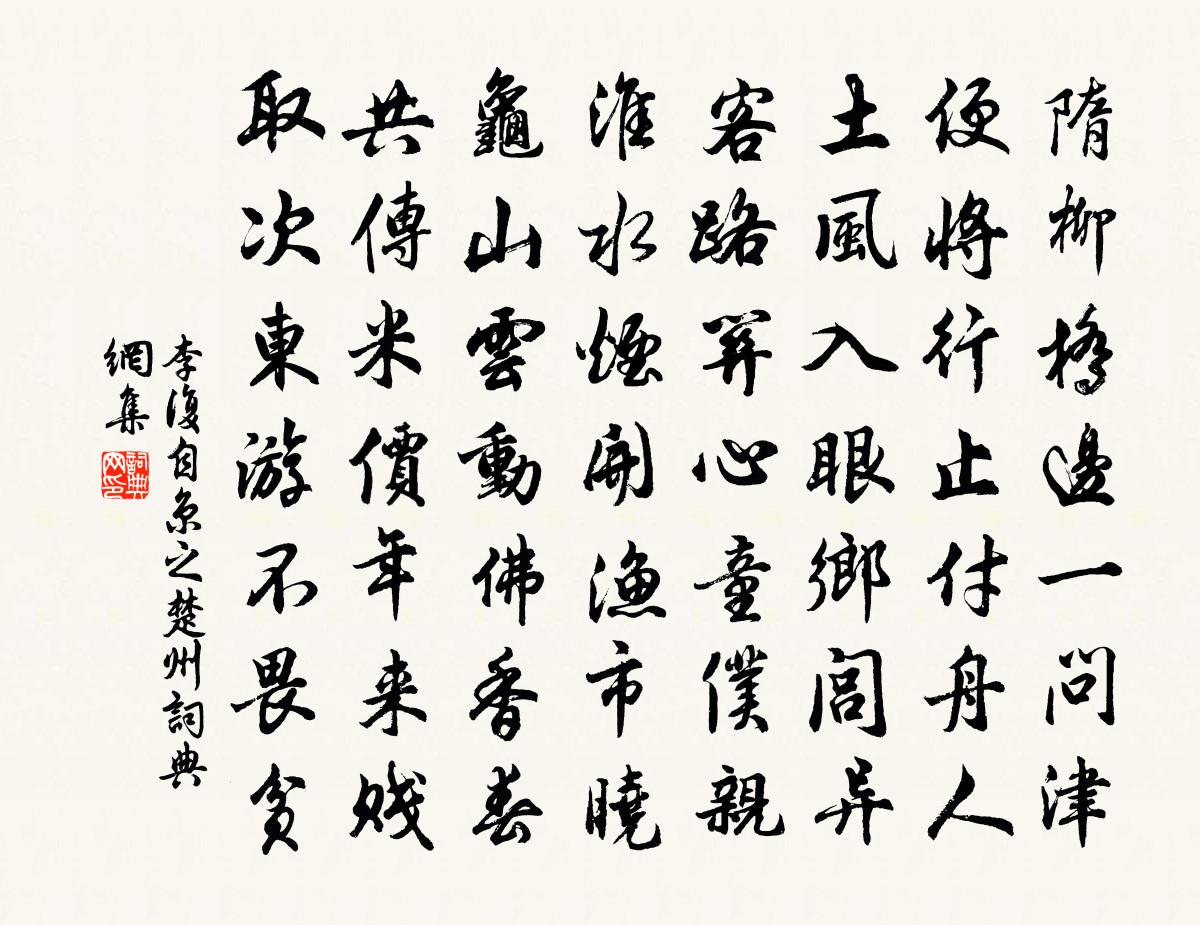 隋柳橋邊一問津
便將行止付舟人
土風入眼鄉閭异
客路羿心童僕親
淮水煙開漁市曉
龜山雲動佛香春
共傳米價年来賤
取次東游不畏貧
李復自京之楚州詞典
網集
詞典网印